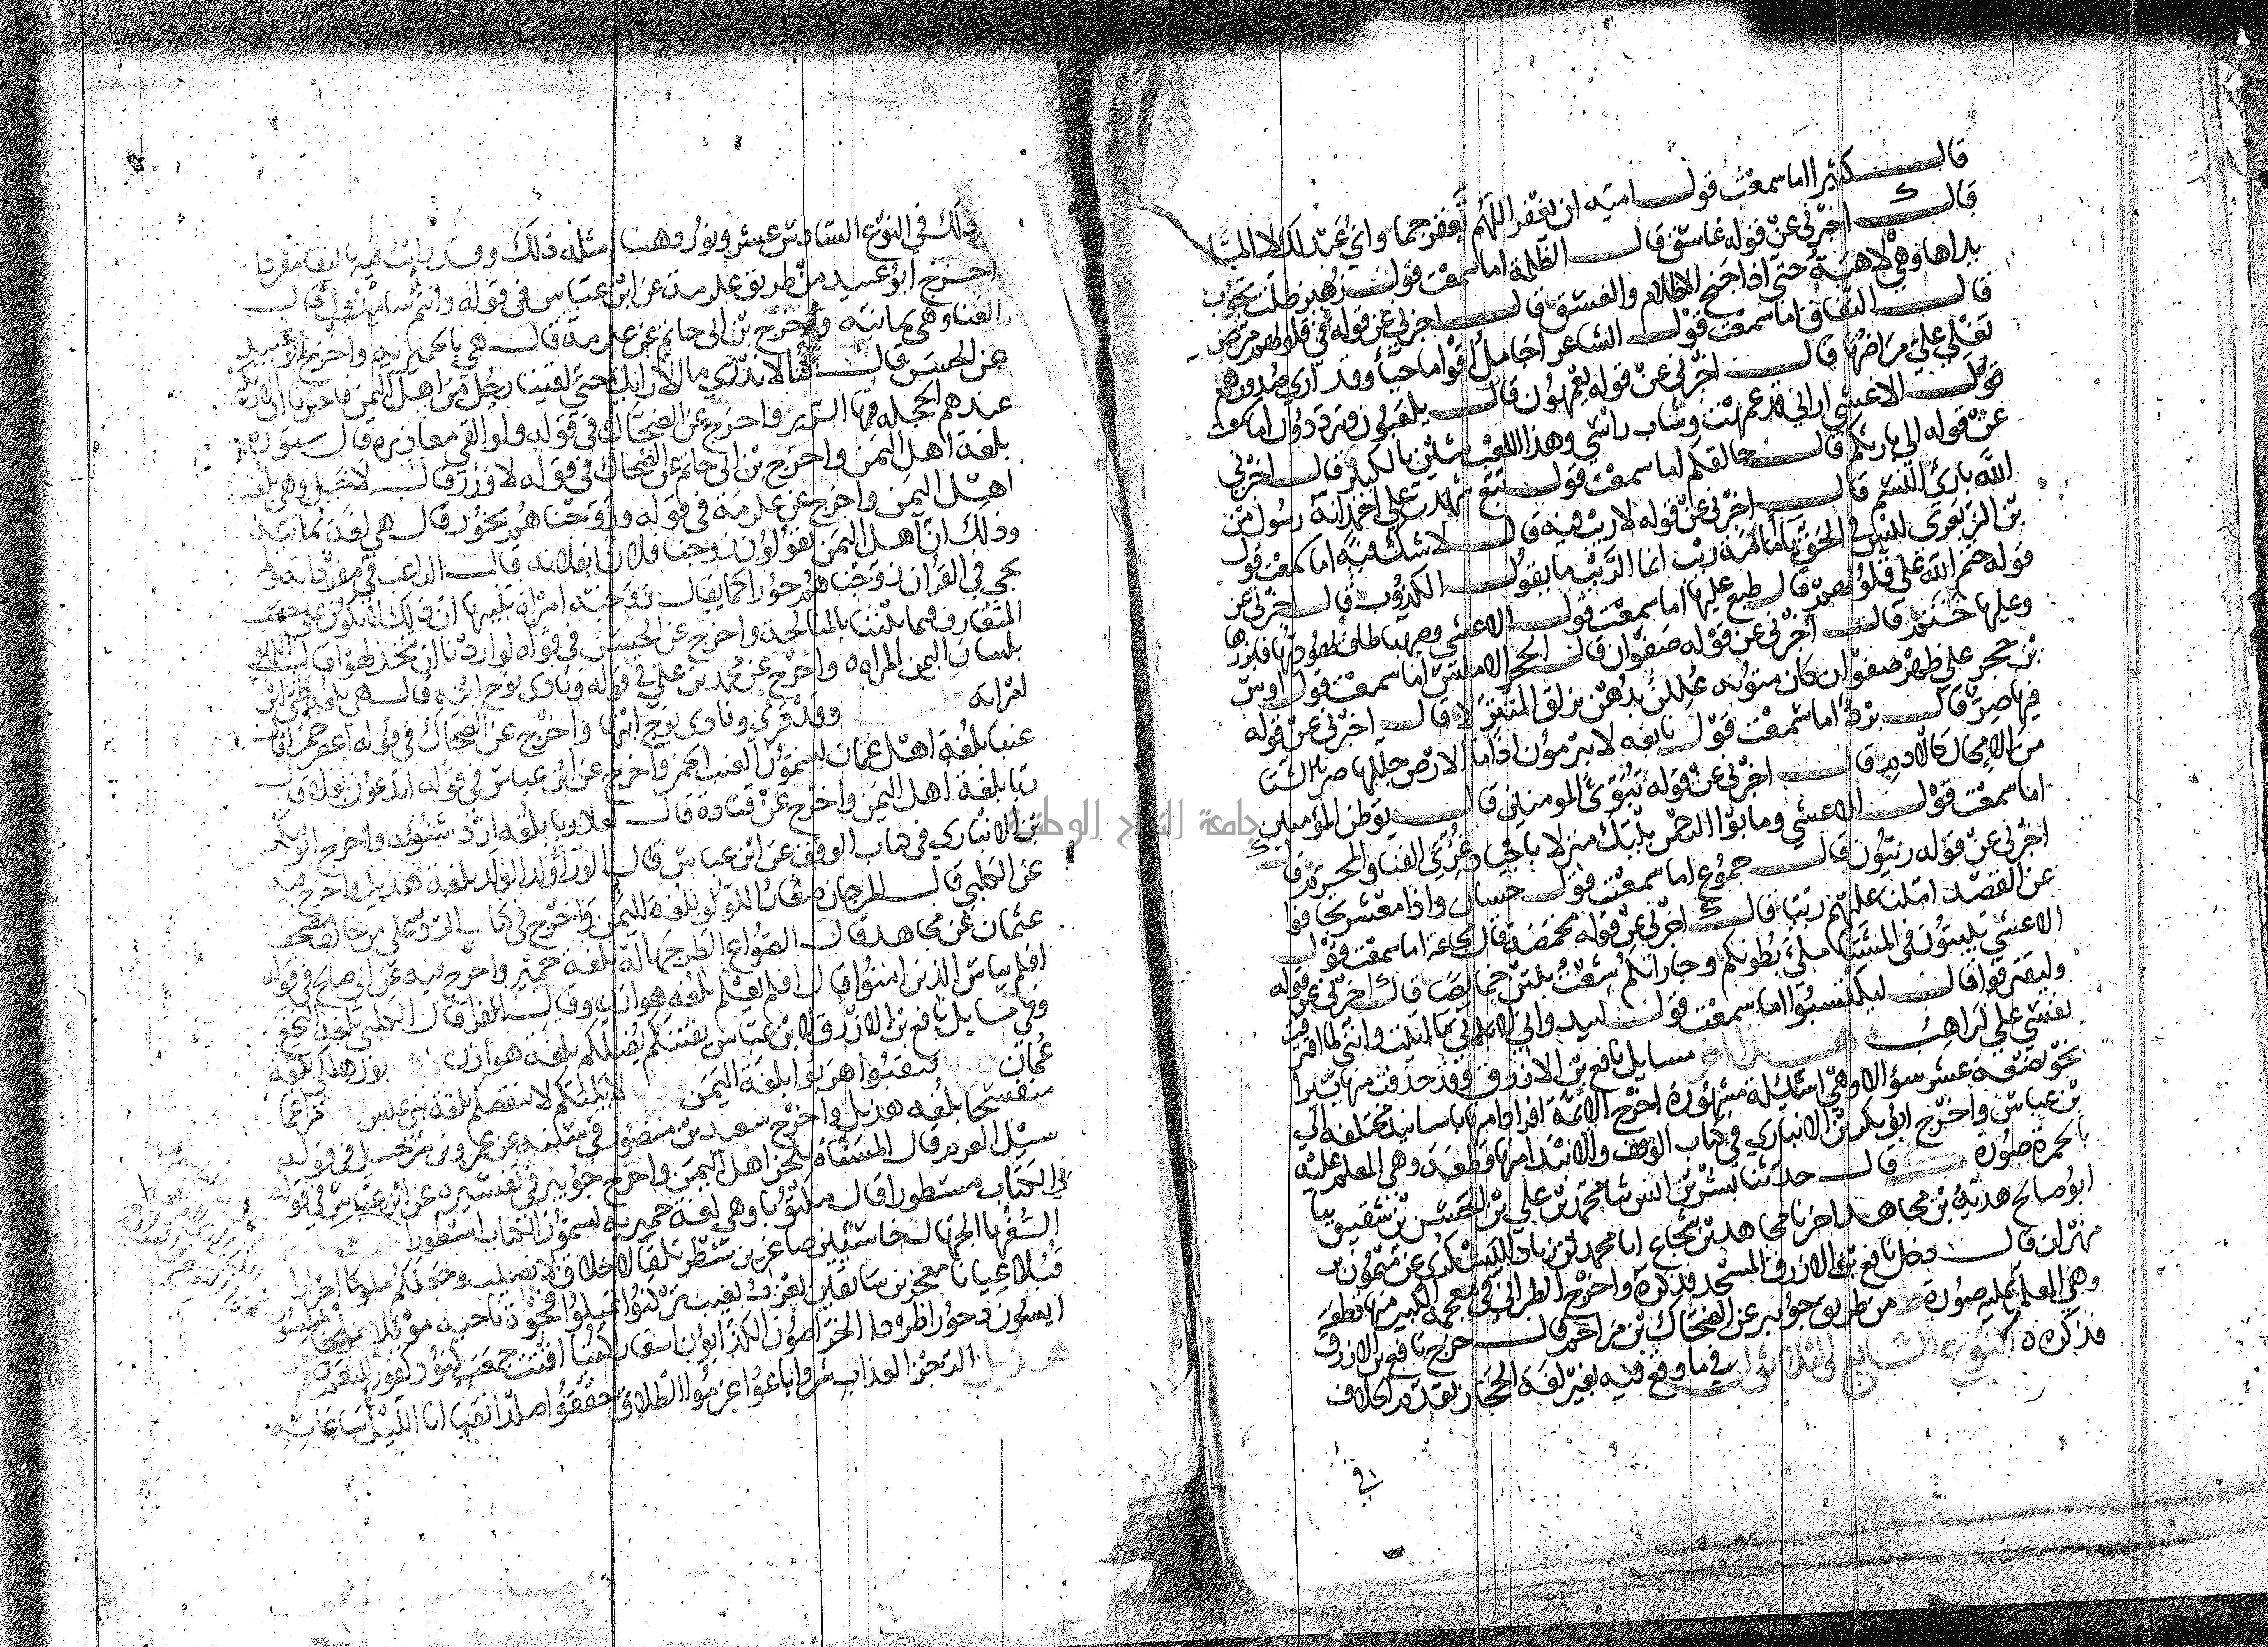 قال كثيرا اما سمعت قول امية ان تغفر اللهم تغفر جما واي عبد لك لا الما
قال اخبرني عن قوله غاسق قال الظلمة اما سمعت قول زهير ظلت تجوب
يداها وهي لاهية حتى اذا جنح الاظلام والغسق قال اخبرني عن قوله في قلوبهم مرض
قال النفاق اما سمعت قول الشاعر اجامل اقواما حيا وقد ارى صدورهم
تغلي علي مراضها قال اخبرني عن قوله يعمهون قال يلعبون ويترددون اما سمعت
قول الاعشى اراني قد عمهت وشاب راسي وهذا اللعب شين بالكبير قال اخبرني
عن قوله الى بارئكم قال خالقكم اما سمعت قول تبع شهدت على احمد انه رسول من
الله بارئ النسم قال اخبرني عن قوله لا ريب فيه قال لا شك فيه اما سمعت قول
بن الزبعرى ليس في الحق يا امامة ريب انما الريب ما يقول الكذوب قال اخبرني عن
قوله ختم الله على قلوبهم قال طبع عليها اما سمعت قول الاعشى وصهباء طاف يهوديها فابرزها
وعليها ختم قال اخبرني عن قوله صفوان قال الحجر الاملس اما سمعت قول اوس
بن حجر على ظهر صفوان كان متونه عللن بدهن يزلق المتنزلا قال اخبرني عن قوله
فيها صر قال برد اما سمعت قول نابغه لا يبرمون اذا ما الارض جللها صر الشتا
من الامحال كالادم قال اخبرني عن قوله تبوئ المومنين قال يوطن المؤمنين
اما سمعت قول الاعشى وما بوا الرحمن بيتك منزلا باجياد غربي الفنا والمحرم قال
اخبرني عن قوله ربيون قال جموع اما سمعت قول حسان واذا معشر تجافوا
عن القصد املنا عليهم ربيا قال اخبرني عن قوله مخمصة قال مجاعة اما سمعت قول
الاعشى تبيتون في المشتى ملئ بطونكم وجاراتكم شعث يبتن خمايصا قال اخبرني عن قوله
وليقترفوا قال ليكتسبوا اما سمعت قول لبيد واني لات ما اتيت وانني لما اقترفت
نفسي علي لراهب هذا اخر مسايل نافع بن الازرق وقد حذفت منها يسيرا
نحو بضعة عشر سؤالا وهي اسئلة مشهورة اخرج الائمة افرادا منها باسانيد مختلفه الى
بن عباس واخرج ابو بكر بن الانباري في كتاب الوقف والابتدا منها قطعة وهي المعلم عليه
بالحمرة صورة ك قال حدثنا بشر بن انس ثنا محمد بن علي بن الحسن بن شقيق ثنا
ابو صالح هدبة بن مجاهد اخبرنا مجاهد بن شجاع انا محمد بن زياد اليشكري عن ميمون بن
مهران قال دخل نافع بن الازرق المسجد فذكره واخرج الطبراني في معجمه الكبير منها قطعة
وهي المعلم عليه صورة ط من طريق جويبر عن الضحاك بن مزاحم قال خرج نافع بن الازرق
فذكره ه النوع السابع والثلاثون في ما وقع فيه بغير لغة الحجاز تقدم الخلاف
في
ذلك في النوع السادس عشر ونورد هنا امثلة ذلك وقد رايت فيه تاليفا مفردا
اخرج ابو عبيد من طريق عكرمة عن ابن عباس في قوله وانتم سامدون قال
الغنا وهي يمانية واخرج بن ابي حاتم عن عكرمة قال هي بالحميرية واخرج ابو عبيد
عن الحسن قال كنا لا ندري ما الارايك حتى لقينا رجل من اهل اليمن فاخبرنا ان الاريكة
عندهم الحجله فيها السرير واخرج عن الضحاك في قوله ولو القى معاذيره قال ستوره
بلغة اهل اليمن واخرج بن ابي حاتم عن الضحاك في قوله لا وزر قال لا حيل وهي بلغة
اهل اليمن واخرج عن عكرمة في قوله وزوجناهم بحور قال هي لغة يمانية
وذلك ان اهل اليمن يقولون زوجنا فلانا بفلانه قال الراغب في مفرداته ولم
يجي في القران زوجناهم حورا كما يقال زوجته امراة تنبيها ان ذلك لا يكون على حسب
المتعارف فيما بيننا بالمناكحة واخرج عن الحسن في قوله لو اردنا ان نتخذ لهوا قال اللهو
بلسان اليمن المراه واخرج عن محمد بن علي في قوله ونادى نوح ابنه قال هي بلغة طي ابن
امراته وقد قري ونادى نوح ابنها واخرج عن الضحاك في قوله اعصر خمرا قال
عنبا بلغة اهل عمان يسمون العنب الخمر واخرج عن ابن عباس في قوله اتدعون بعلا قال
ربا بلغة اهل اليمن واخرج عن قتادة قال بعلا ربا بلغه ازد شنؤه واخرج ابو بكر
بن الانباري في كتاب الوقف عن ابن عباس قال الورا ولد الولد بلغة هذيل واخرج فيه
عن الكلبي قال المرجان صغار اللولو بلغه اليمن واخرج في كتاب الرد على من خالف مصحف
عثمان عن مجاهد قال الصواع الطرجهالة بلغة حمير واخرج فيه عن ابي صالح في قوله
افلم يياس الذين امنوا قال افلم يعلم بلغه هوازن وقال الفرا قال الكلبي بلغة النخع
وفي مسايل نافع بن الازرق لابن عباس يفتنكم يضلكم بلغة هوازن بورا هلكى بلغه
عمان فنقبوا هربوا بلغة اليمن لا يلتكم لا ينقصكم بلغه بني عبس مراغما
منفسحا بلغه هذيل واخرج سعيد بن منصور في سننه عن عمرو بن شرحبيل في قوله
سيل العرم قال المسناة بلحن اهل اليمن واخرج جويبر في تفسيره عن ابن عباس في قوله
في الكتاب مسطورا قال مكتوبا وهي لغة حميرية يسمون الكتاب اسطورا
السفها الجهال خاسئين صاغرين شطر تلقا لا خلاق لا نصيب وجعلكم ملوكا احرارا
قبلا عيانا معجزين سابقين يعزب يغيب تركنوا تميلوا فجوة ناحيه موئلا ملجا مبلسون
ايسون دحورا طردا الخراصون الكذابون اسفارا كتبا اقتت جمعت كنود كفور للنعم
هذيل الرجز العذاب شروا باعوا عزموا الطلاق حققوا صلدا نقيا انا الليل ساعاته
جامعة النجاح الوطنية